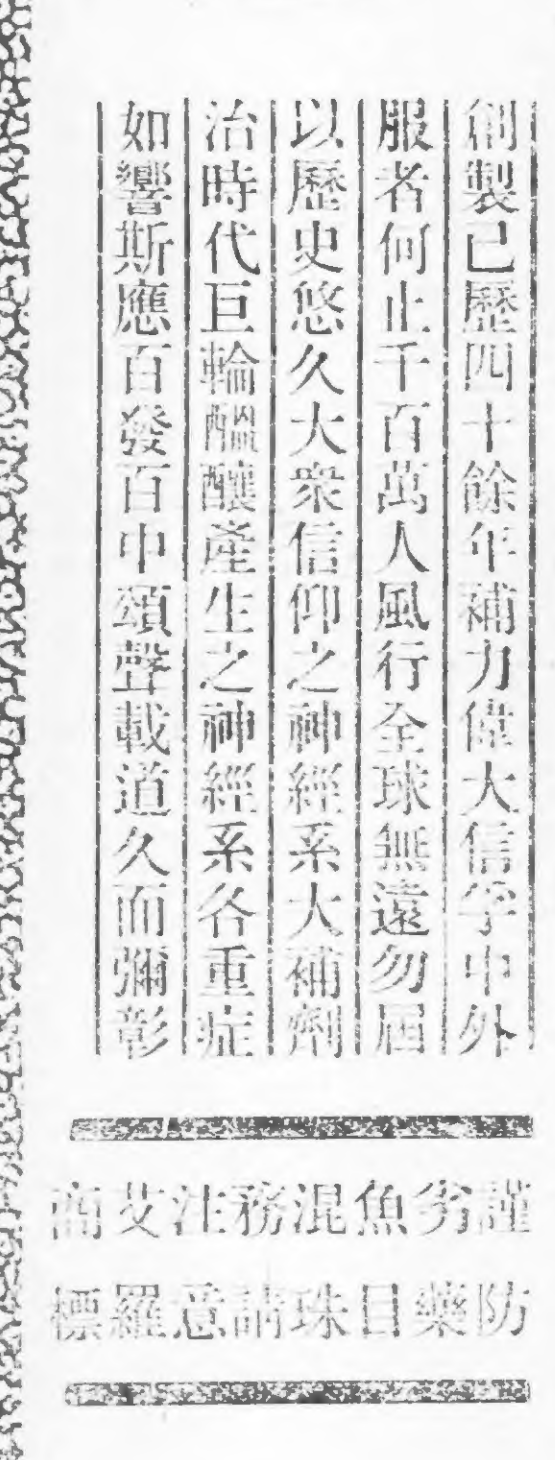 創製已歷四十餘年補力偉大信孚中外
服者何止千百萬人風行全球無遠勿屆
以歷史悠久大衆信仰之神經系大補劑
治時代巨輪醞釀產生之神經系各重症
如響斯應百發百中頌聲載道久而彌彰
謹防
劣藥
魚目
混珠
務請
注意
艾羅
商標